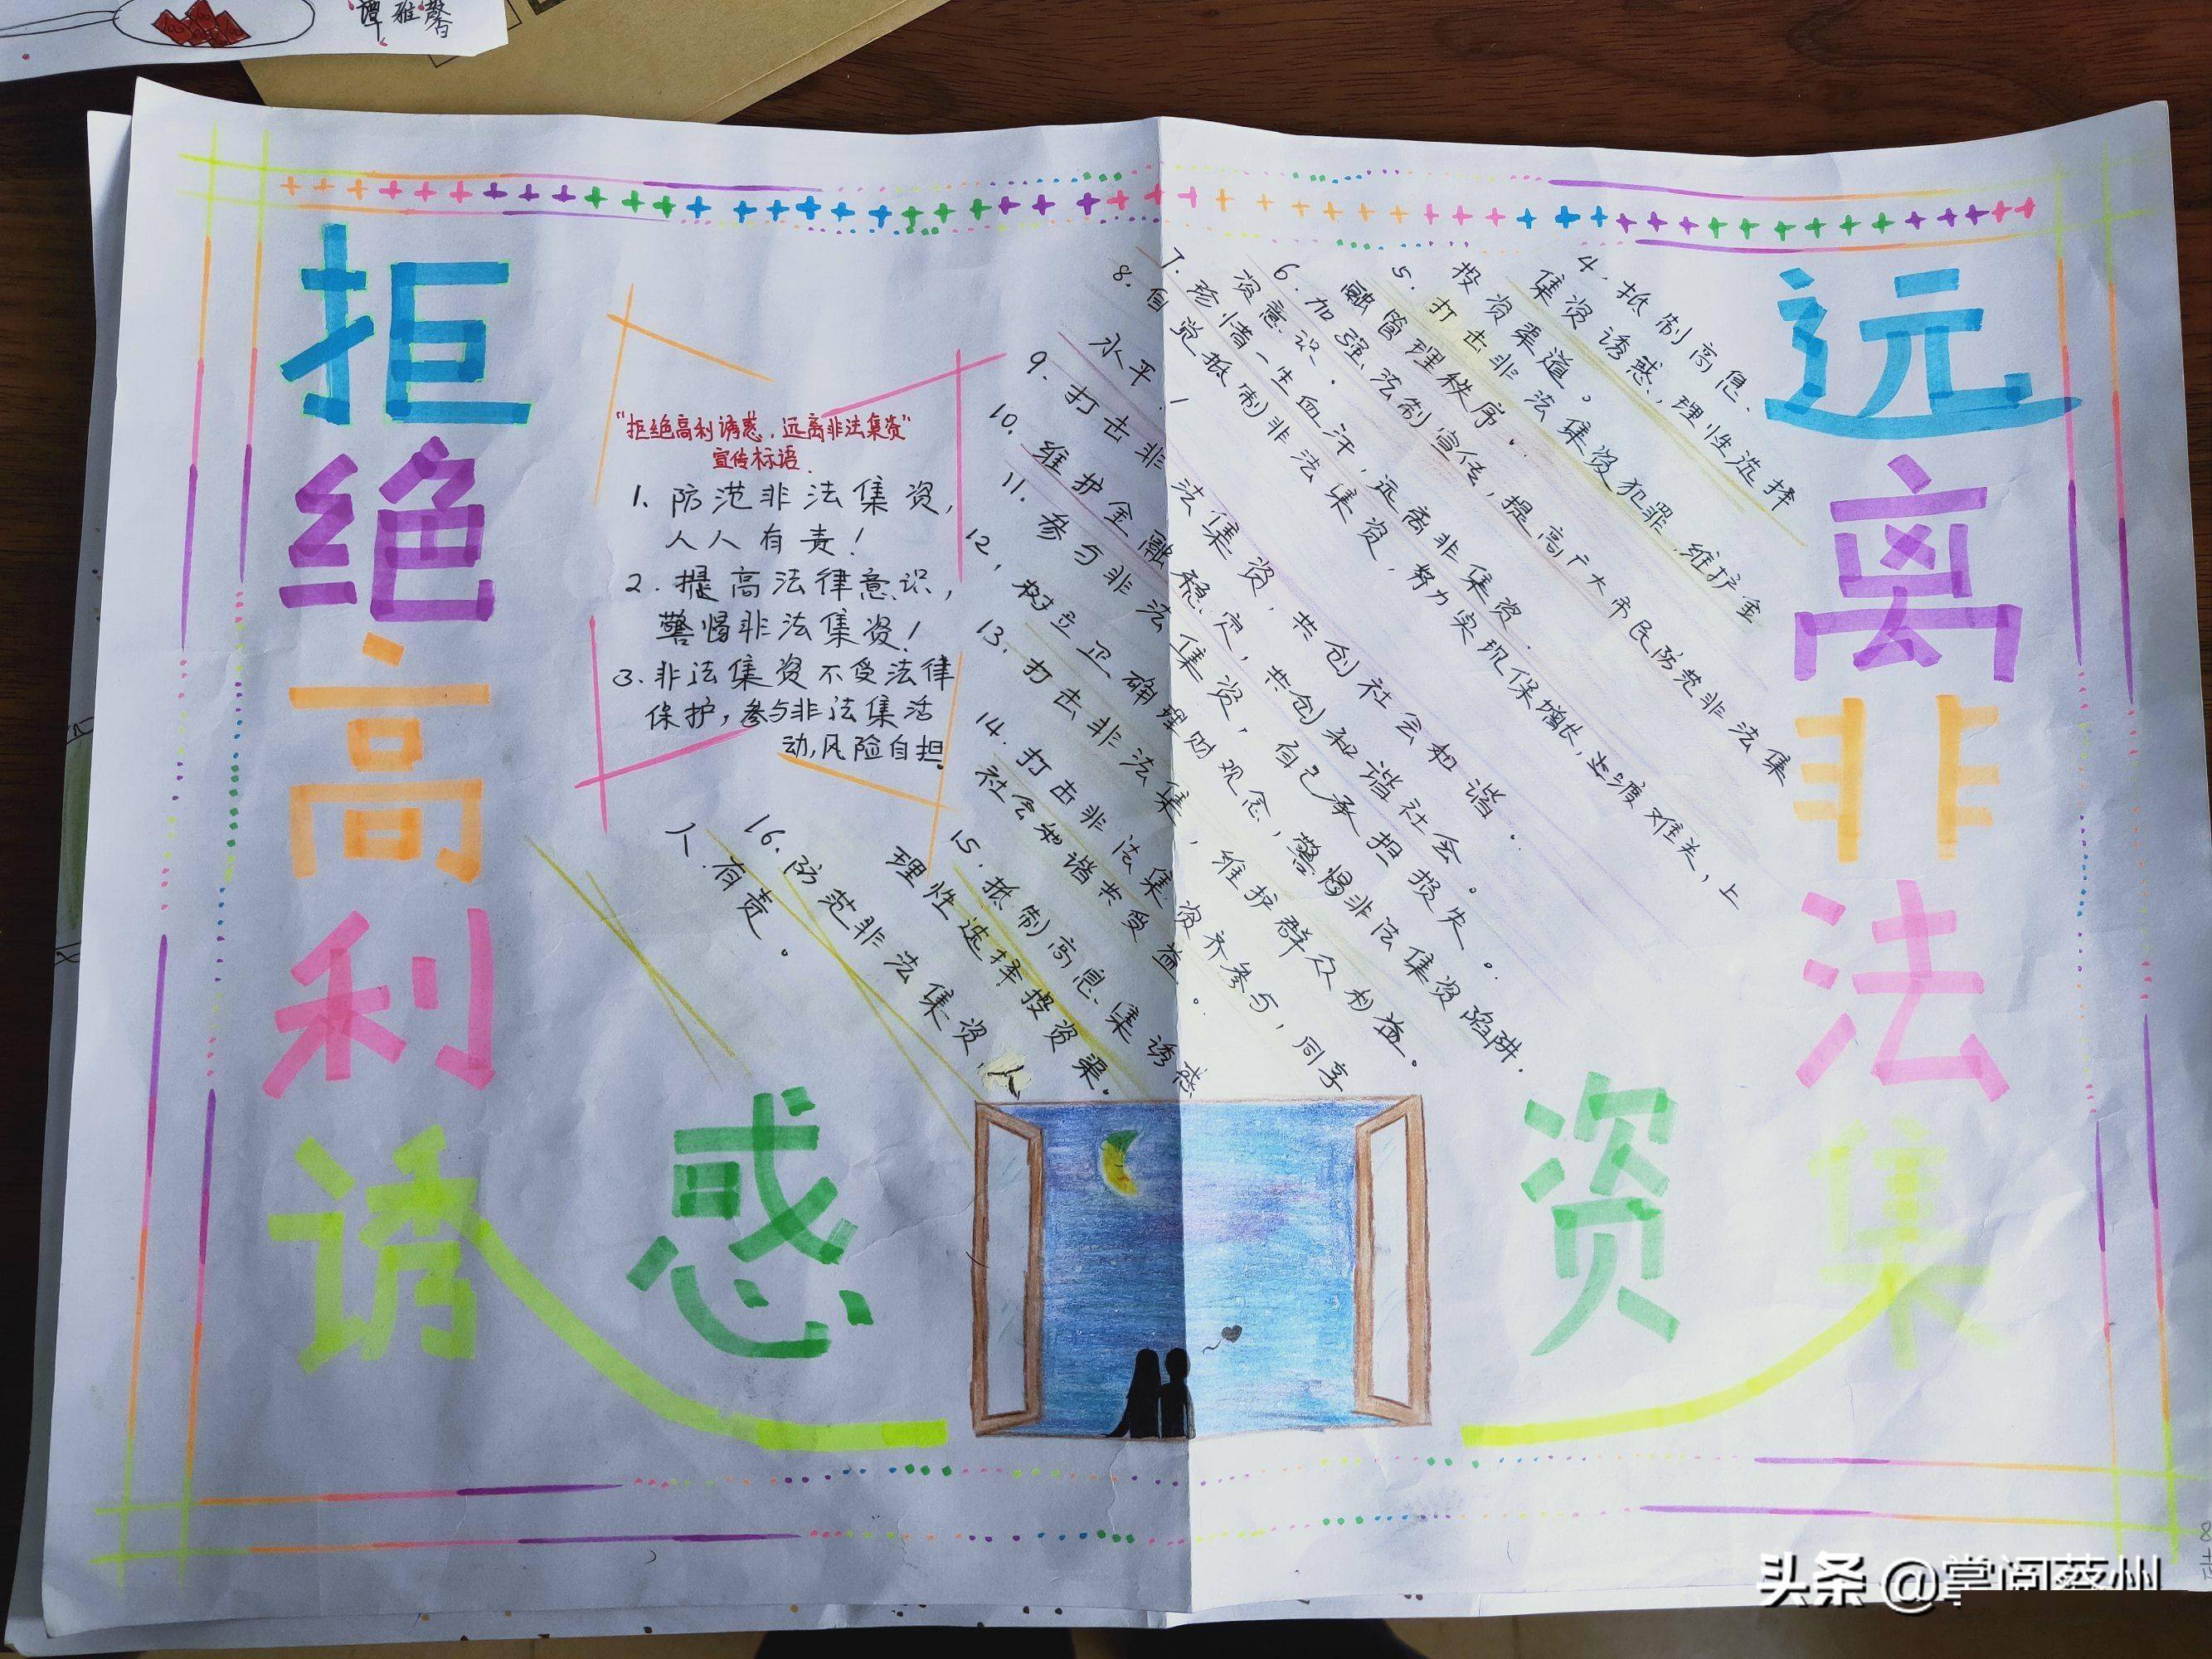 谭雅馨
拒绝高利诱惑
远离非法集资
“拒绝高利诱惑，远离非法集资”
宣传标语
1. 防范非法集资，
人人有责！
2. 提高法律意识，
警惕非法集资！
3. 非法集资不受法律
保护，参与非法集活
动，风险自担。
4. 抵制高息、
集资诱惑，理性选择
投资渠道。
5. 打击非法集资犯罪，维护金
融管理秩序。
6. 加强法制宣传，提高广大市民防范非法集
资意识。
7. 珍惜一生血汗，远离非集资。
8. 自觉抵制非法集资，努力实现保增长，渡难关，上
水平！
9. 打击非法集资，共创社会和谐。
10. 维护金融稳定，共创和谐社会。
11. 参与非法集资，自己承担损失。
12. 树立正确理财观念，警惕非法集资陷阱.
13. 打击非法集，维护群众利益。
14. 打击非法集资齐参与，同享
社会和谐共受益。
15. 抵制高息、集诱惑
理性选择投资渠.
16. 防范非法集资，人
人有责。
头条 @掌阅蔡州